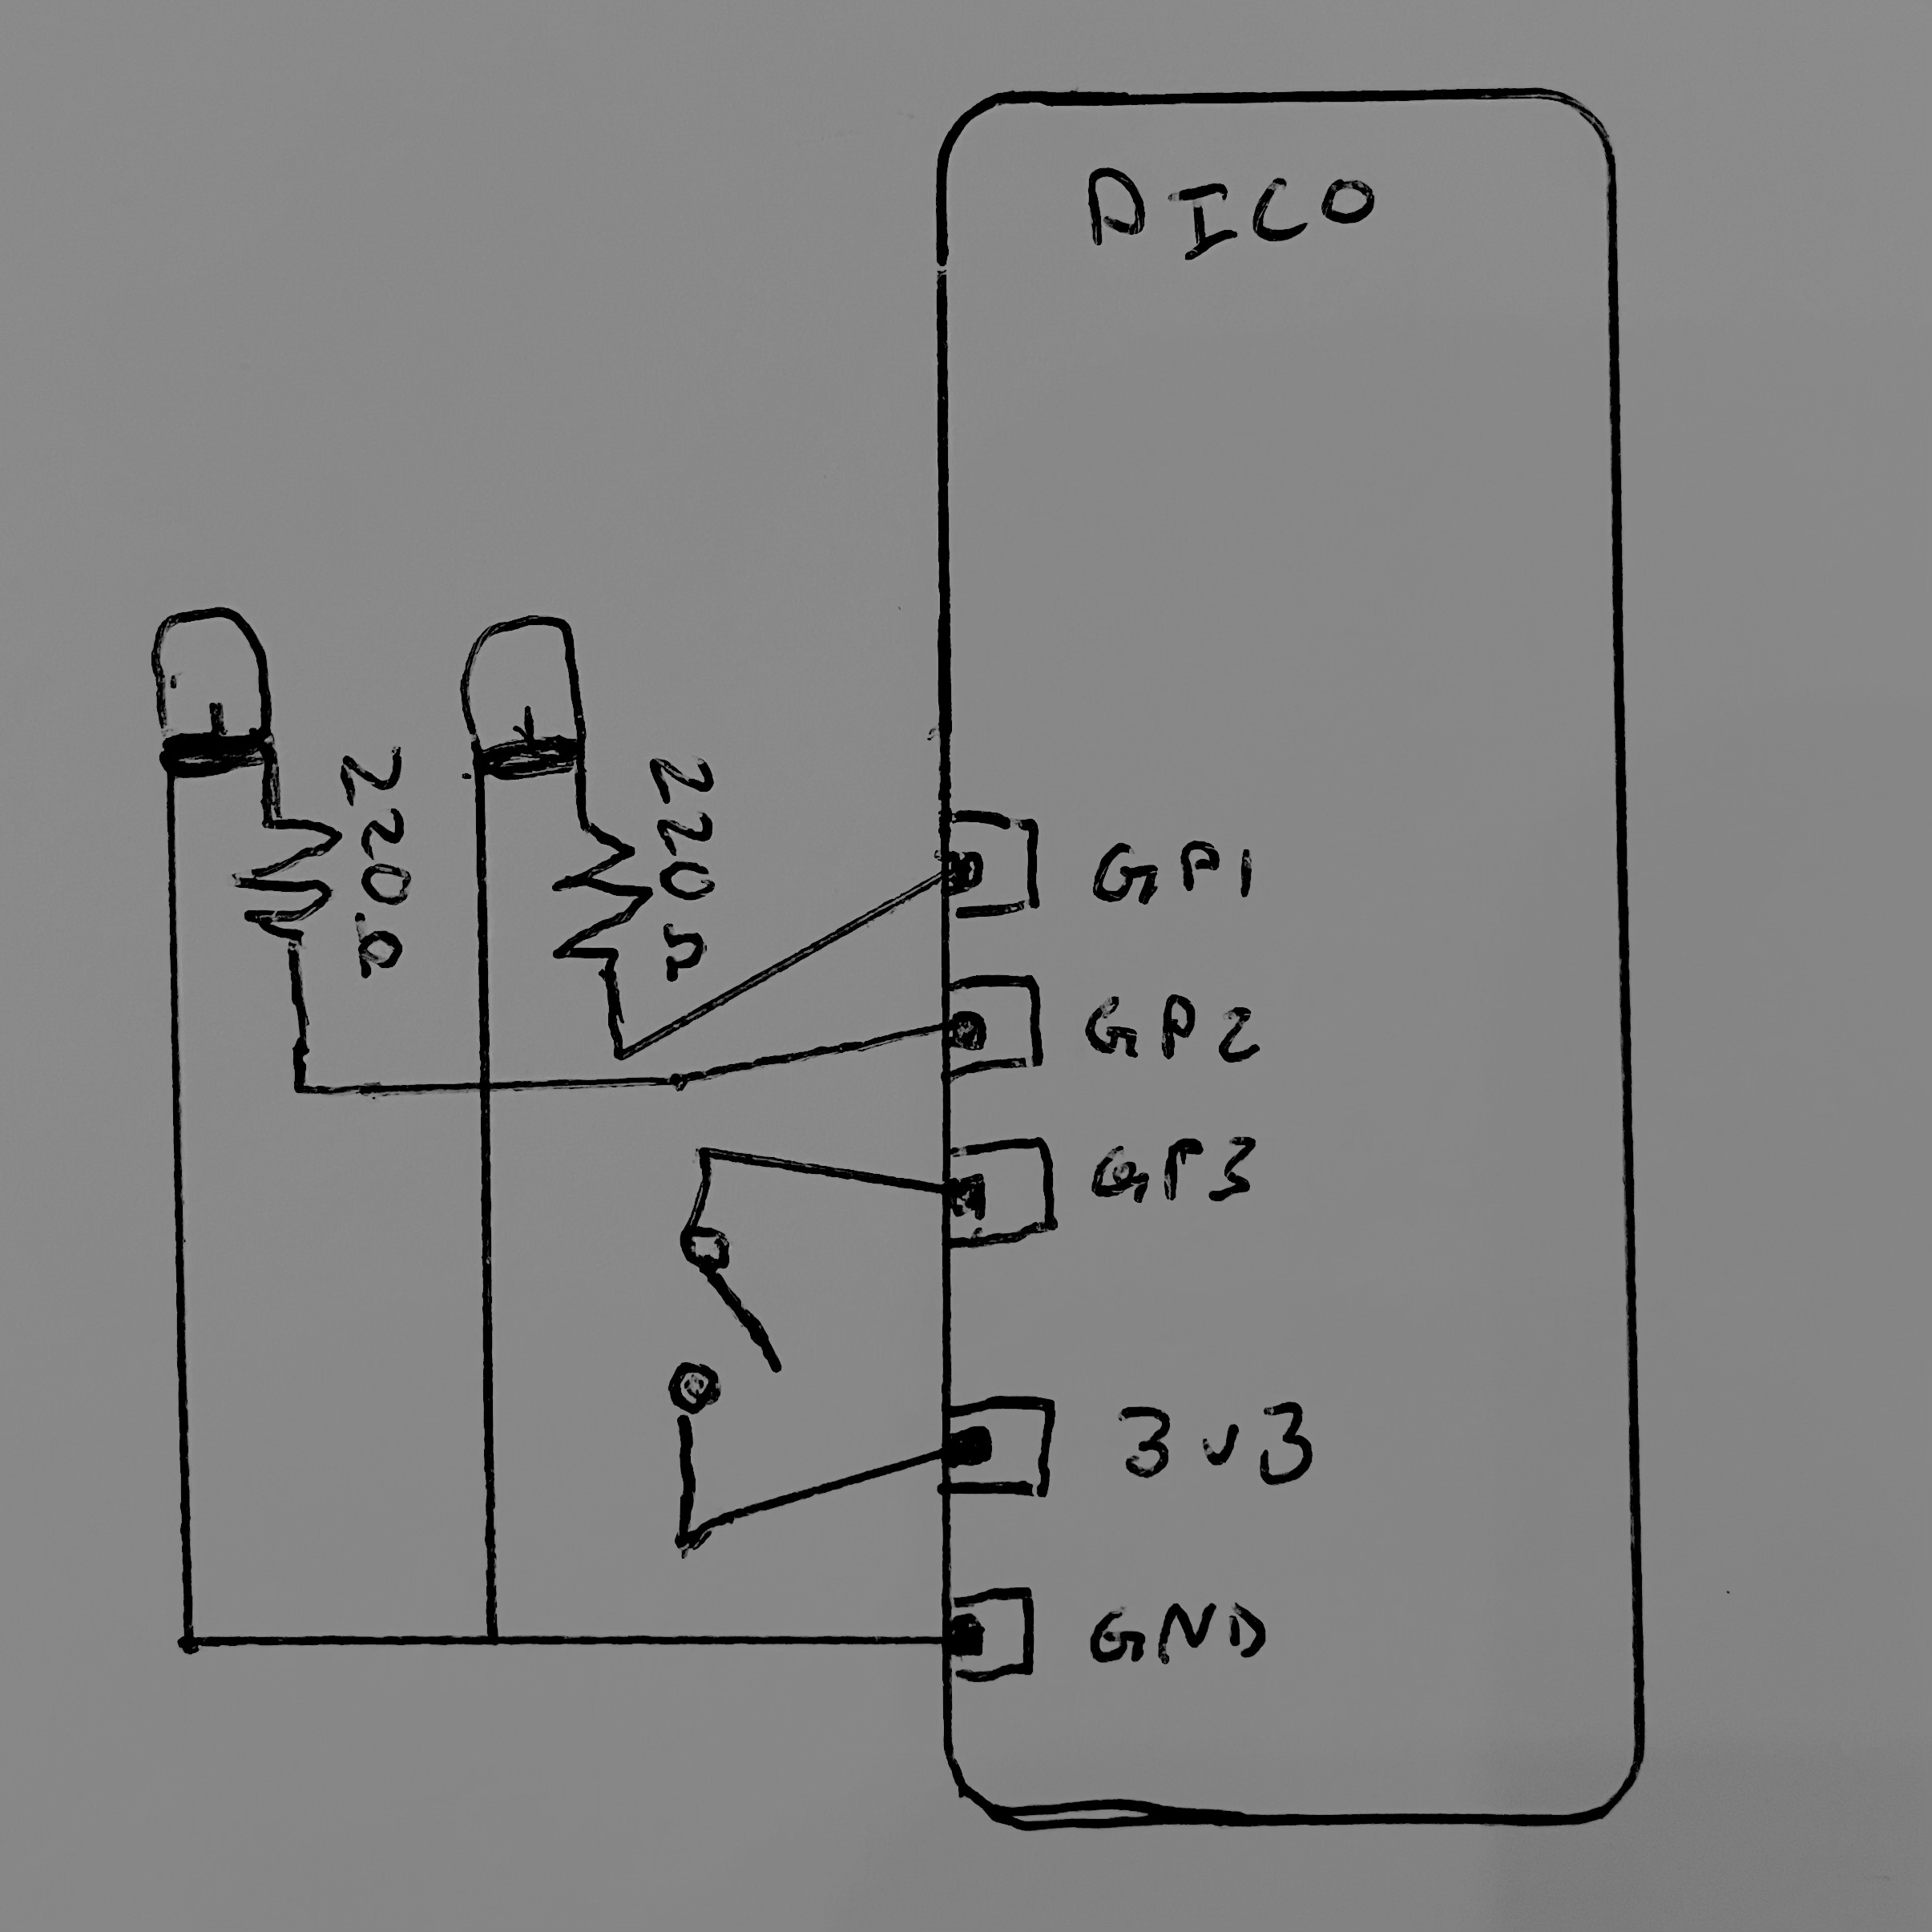 PICO
220R
220R
GP1
GP2
GP3
3v3
GND